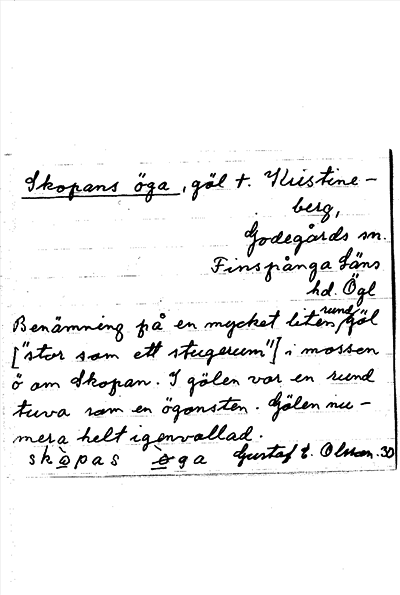 Skopans öga, göl t. Kristine-
berg,
Godegårds sn.
Finspånga Läns
hd. Ögl
Benämning på en mycket liten, rund göl
["stor som ett stugerum"] i mossen
ö om Skopan. I gölen var en rund
tuva som en ögonsten. Gölen nu-
mera helt igenvallad.
skòpas öga Gustaf E. Olsson. 30